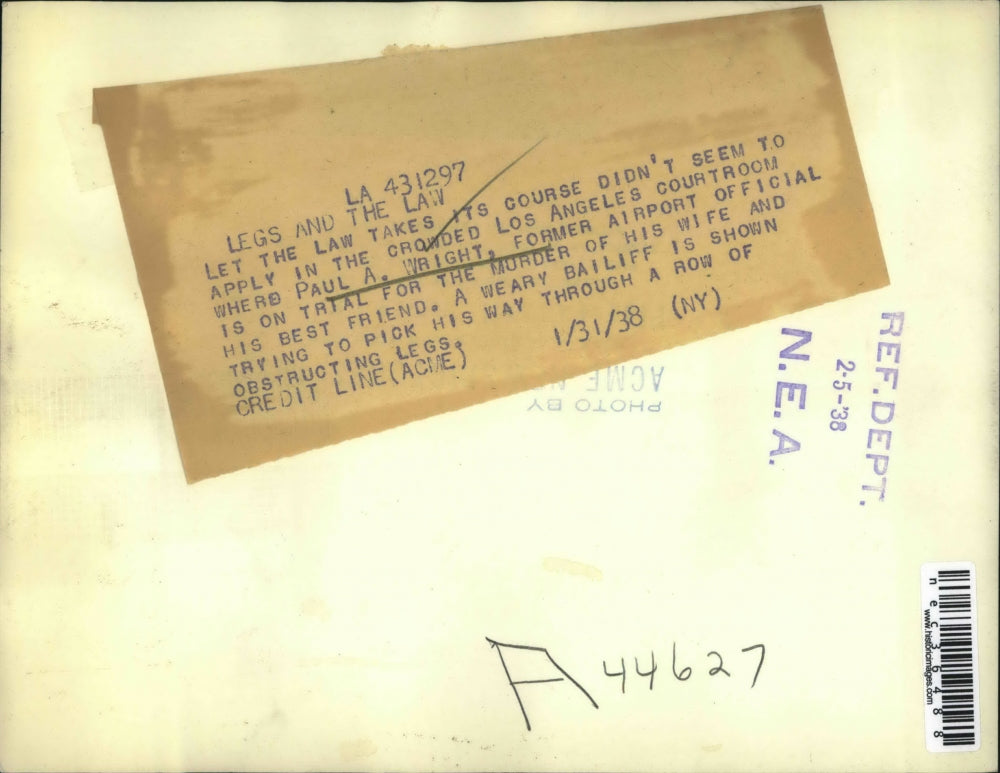 LA 431297
LEGS AND THE LAW
LET THE LAW TAKES ITS COURSE DIDN'T SEEM TO
APPLY IN THE CROWDED LOS ANGELES COURTROOM
WHERE PAUL A. WRIGHT, FORMER AIRPORT OFFICIAL
IS ON TRIAL FOR THE MURDER OF HIS WIFE AND
HIS BEST FRIEND. A WEARY BAILIFF IS SHOWN
TRYING TO PICK HIS WAY THROUGH A ROW OF
OBSTRUCTING LEGS.
CREDIT LINE (ACME) 1/31/38 (NY)
PHOTO BY
ACME
REF. DEPT.
2-5-'38
N.E.A.
A 44627
nec36488
www.historicimages.com